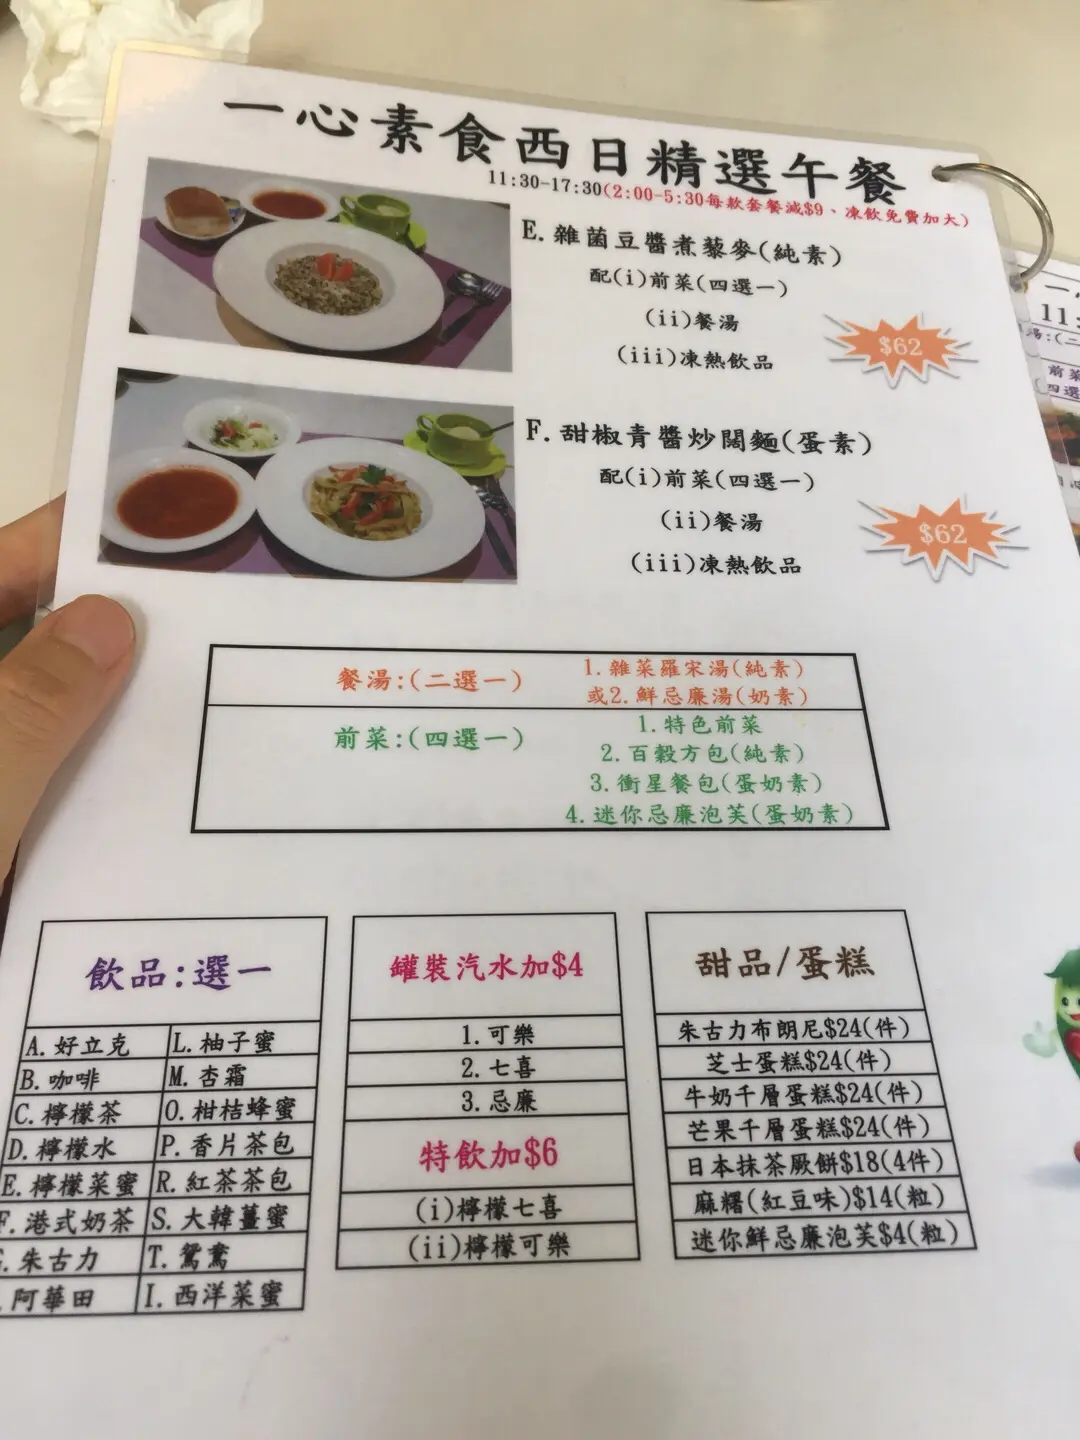 一心素食西日精選午餐
11:30-17:30(2:00-5:30每款套餐減$9、凍飲免費加大)
E.雜菌豆醬煮藜麥(純素)
配(i)前菜(四選一)
(ii)餐湯
(iii)凍熱飲品
$62
F.甜椒青醬炒闊麵(蛋素)
配(i)前菜(四選一)
(ii)餐湯
(iii)凍熱飲品
$62
餐湯:(二選一)
1.雜菜羅宋湯(純素)
或2.鮮忌廉湯(奶素)
前菜:(四選一)
1.特色前菜
2.百穀方包(純素)
3.衝星餐包(蛋奶素)
4.迷你忌廉泡芙(蛋奶素)
飲品:選一
A.好立克 L.柚子蜜
B.咖啡 M.杏霜
C.檸檬茶 O.柑桔蜂蜜
D.檸檬水 P.香片茶包
E.檸檬菜蜜 R.紅茶茶包
F.港式奶茶 S.大韓薑蜜
朱古力 T.鴛鴦
阿華田 I.西洋菜蜜
罐裝汽水加$4
1.可樂
2.七喜
3.忌廉
特飲加$6
(i)檸檬七喜
(ii)檸檬可樂
甜品/蛋糕
朱古力布朗尼$24(件)
芝士蛋糕$24(件)
牛奶千層蛋糕$24(件)
芒果千層蛋糕$24(件)
日本抹茶厥餅$18(4件)
麻糬(紅豆味)$14(粒)
迷你鮮忌廉泡芙$4(粒)
一
11:
湯:(二
前菜
(四選